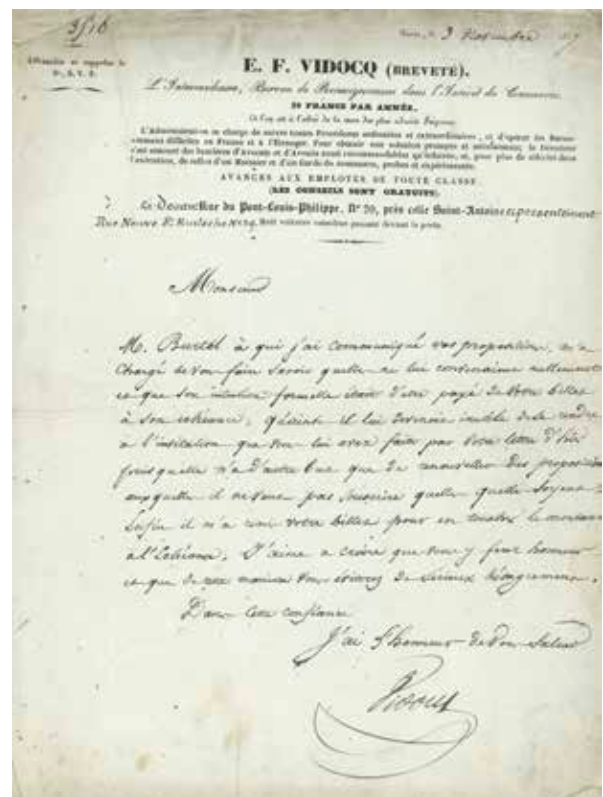 3516
3 Novembre
Affranchir et rappeler le
E. F. VIDOCQ (BREVETÉ).
L'Intermédiaire, Bureau de Renseignemens dans l'Intérêt du Commerce.
20 FRANCS PAR ANNÉE,
et l'on est à l'abri de la ruse des plus adroits Fripons.
L'Administration se charge de suivre toutes Procédures ordinaires et extraordinaires, et d'opérer des Recou-
vremens difficiles en France et à l'Étranger. Pour obtenir une solution prompte et satisfaisante, le Directeur
s'est entouré des lumières d'Avocats et d'Avoués aussi recommandables qu'éclairés, et, pour plus de célérité dans
l'exécution, de celles d'un Huissier et d'un Garde du commerce, probes et expérimentés.
AVANCES AUX EMPLOYÉS DE TOUTE CLASSE.
(LES CONSEILS SONT GRATUITS).
Rue du Pont-Louis-Philippe, N° 20, près celle Saint-Antoine et présentement
Rue Neuve St Eustache N° 39. Huit voitures omnibus passent devant la porte.
Monsieur
M. Burtel à qui j'ai communiqué vos propositions, m'a
chargé de vous faire savoir quelle ne lui convenaient nullement
ce que son intention formelle était d'être payé de votre billet
à son échéance, il lui devenait inutile de se rendre
a l'invitation que vous lui avez fait par votre lettre d'hier
puis quelle n'a d'autre but que de renouveller des propositions
auxquelle il ne veut pas souscrire quelle quelle soyent
Enfin il m'a remis votre billet pour en toucher le montant
à l'Echéance, J'aime a croire que vous y ferez honneur
ce que de cette manière vous éviterez de sérieux désagremens.
Dans cette confiance
J'ai l'honneur de vous saluer
Vidocq